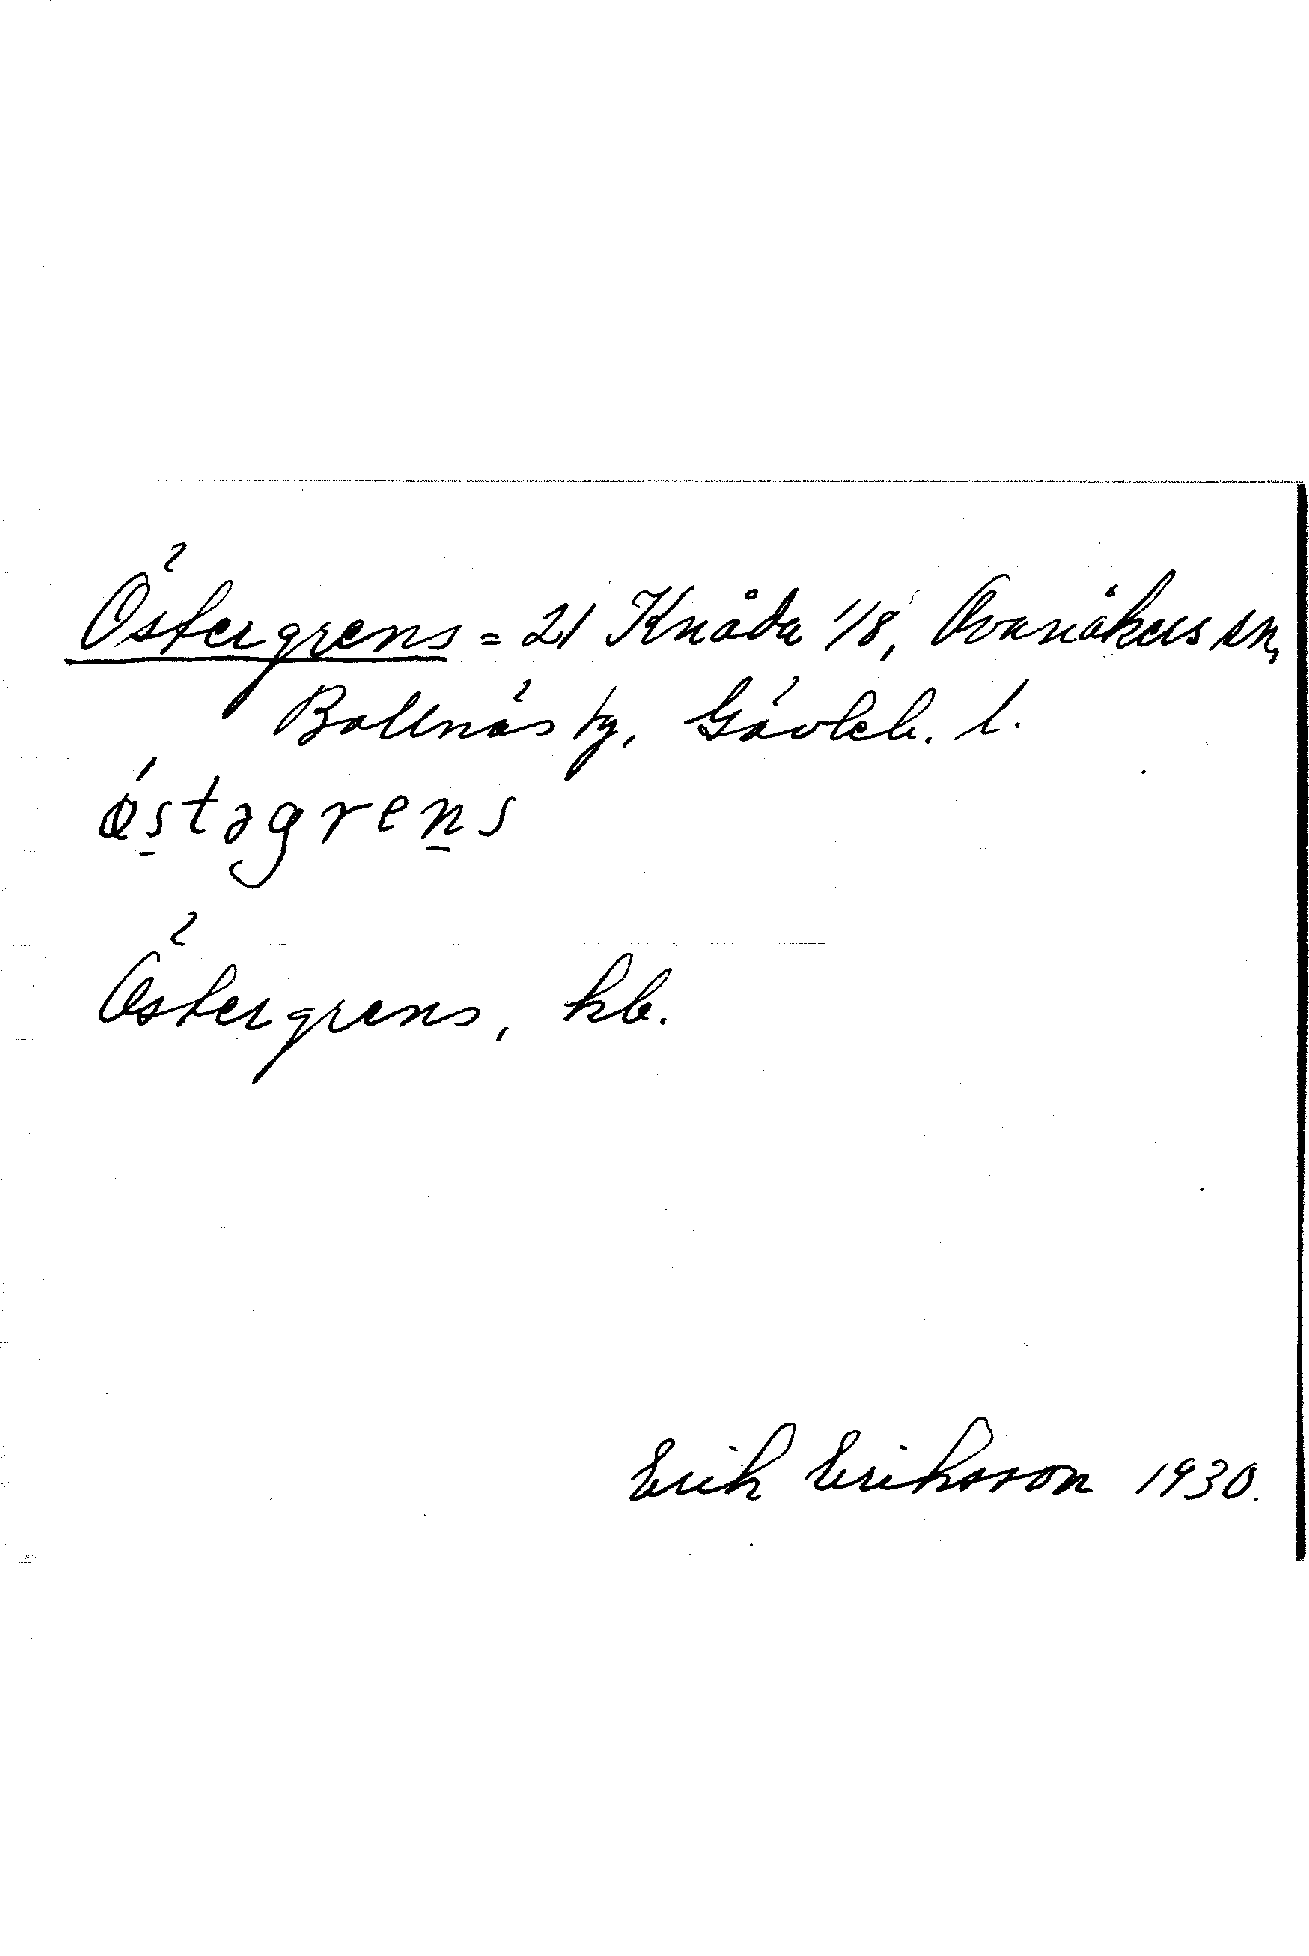 Östergrens = 21 Knåda 1/8, Ovanåkers sn,
Bollnäs tg, Gävleb. l.
ǿstəgrens
Östergrens, kb.
Erik Eriksson 1930.